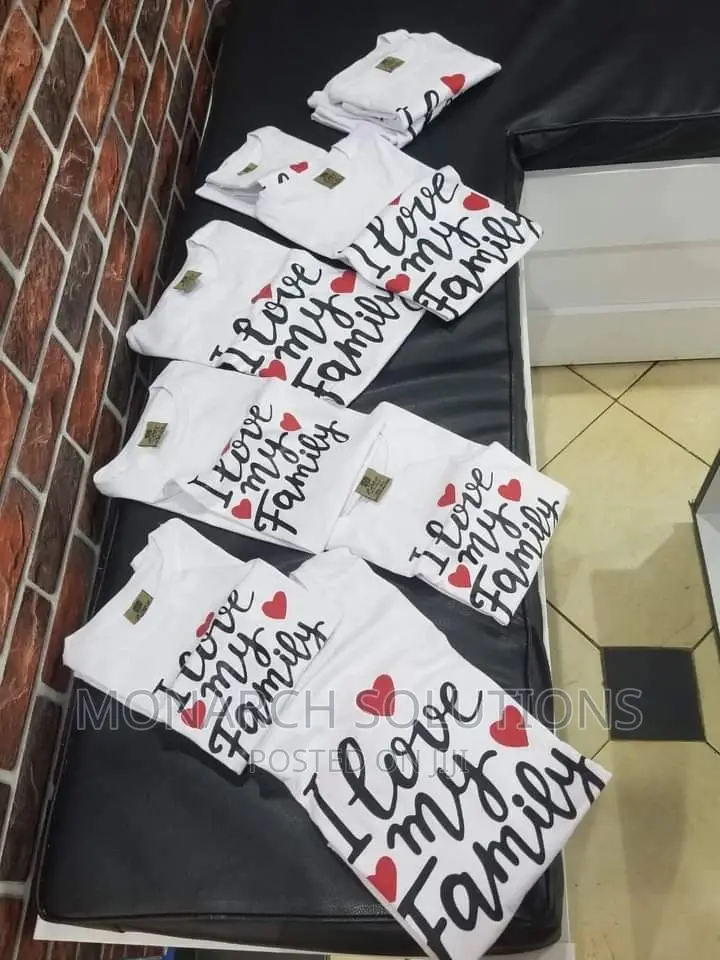 I love
my
Family
I love
my
Family
I love
my
Family
I love
my
Family
I love
my
Family
I love
my
Family
MONARCH SOLUTIONS
POSTED ON JIJI